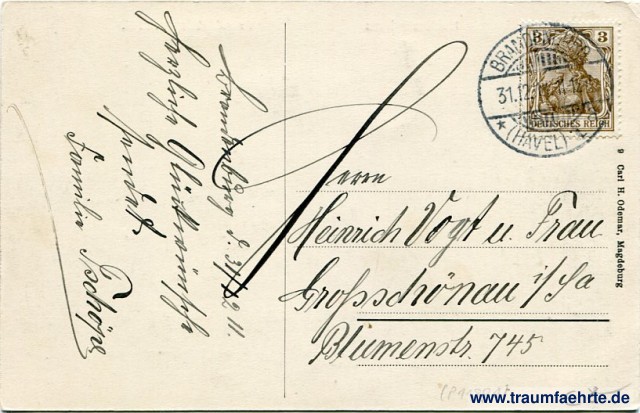 Brandenburg d. 31/12 11.
Herzliche Glückwünsche
sendet
Familie
Herrn
Heinrich Vogt u. Frau
Grossschönau i/Sa
Blumenstr. 745
3 3
DEUTSCHES REICH
BRANDENBURG
31.12.11
* (HAVEL) 1
9 Carl H. Odemar, Magdeburg
www.traumfaehrte.de